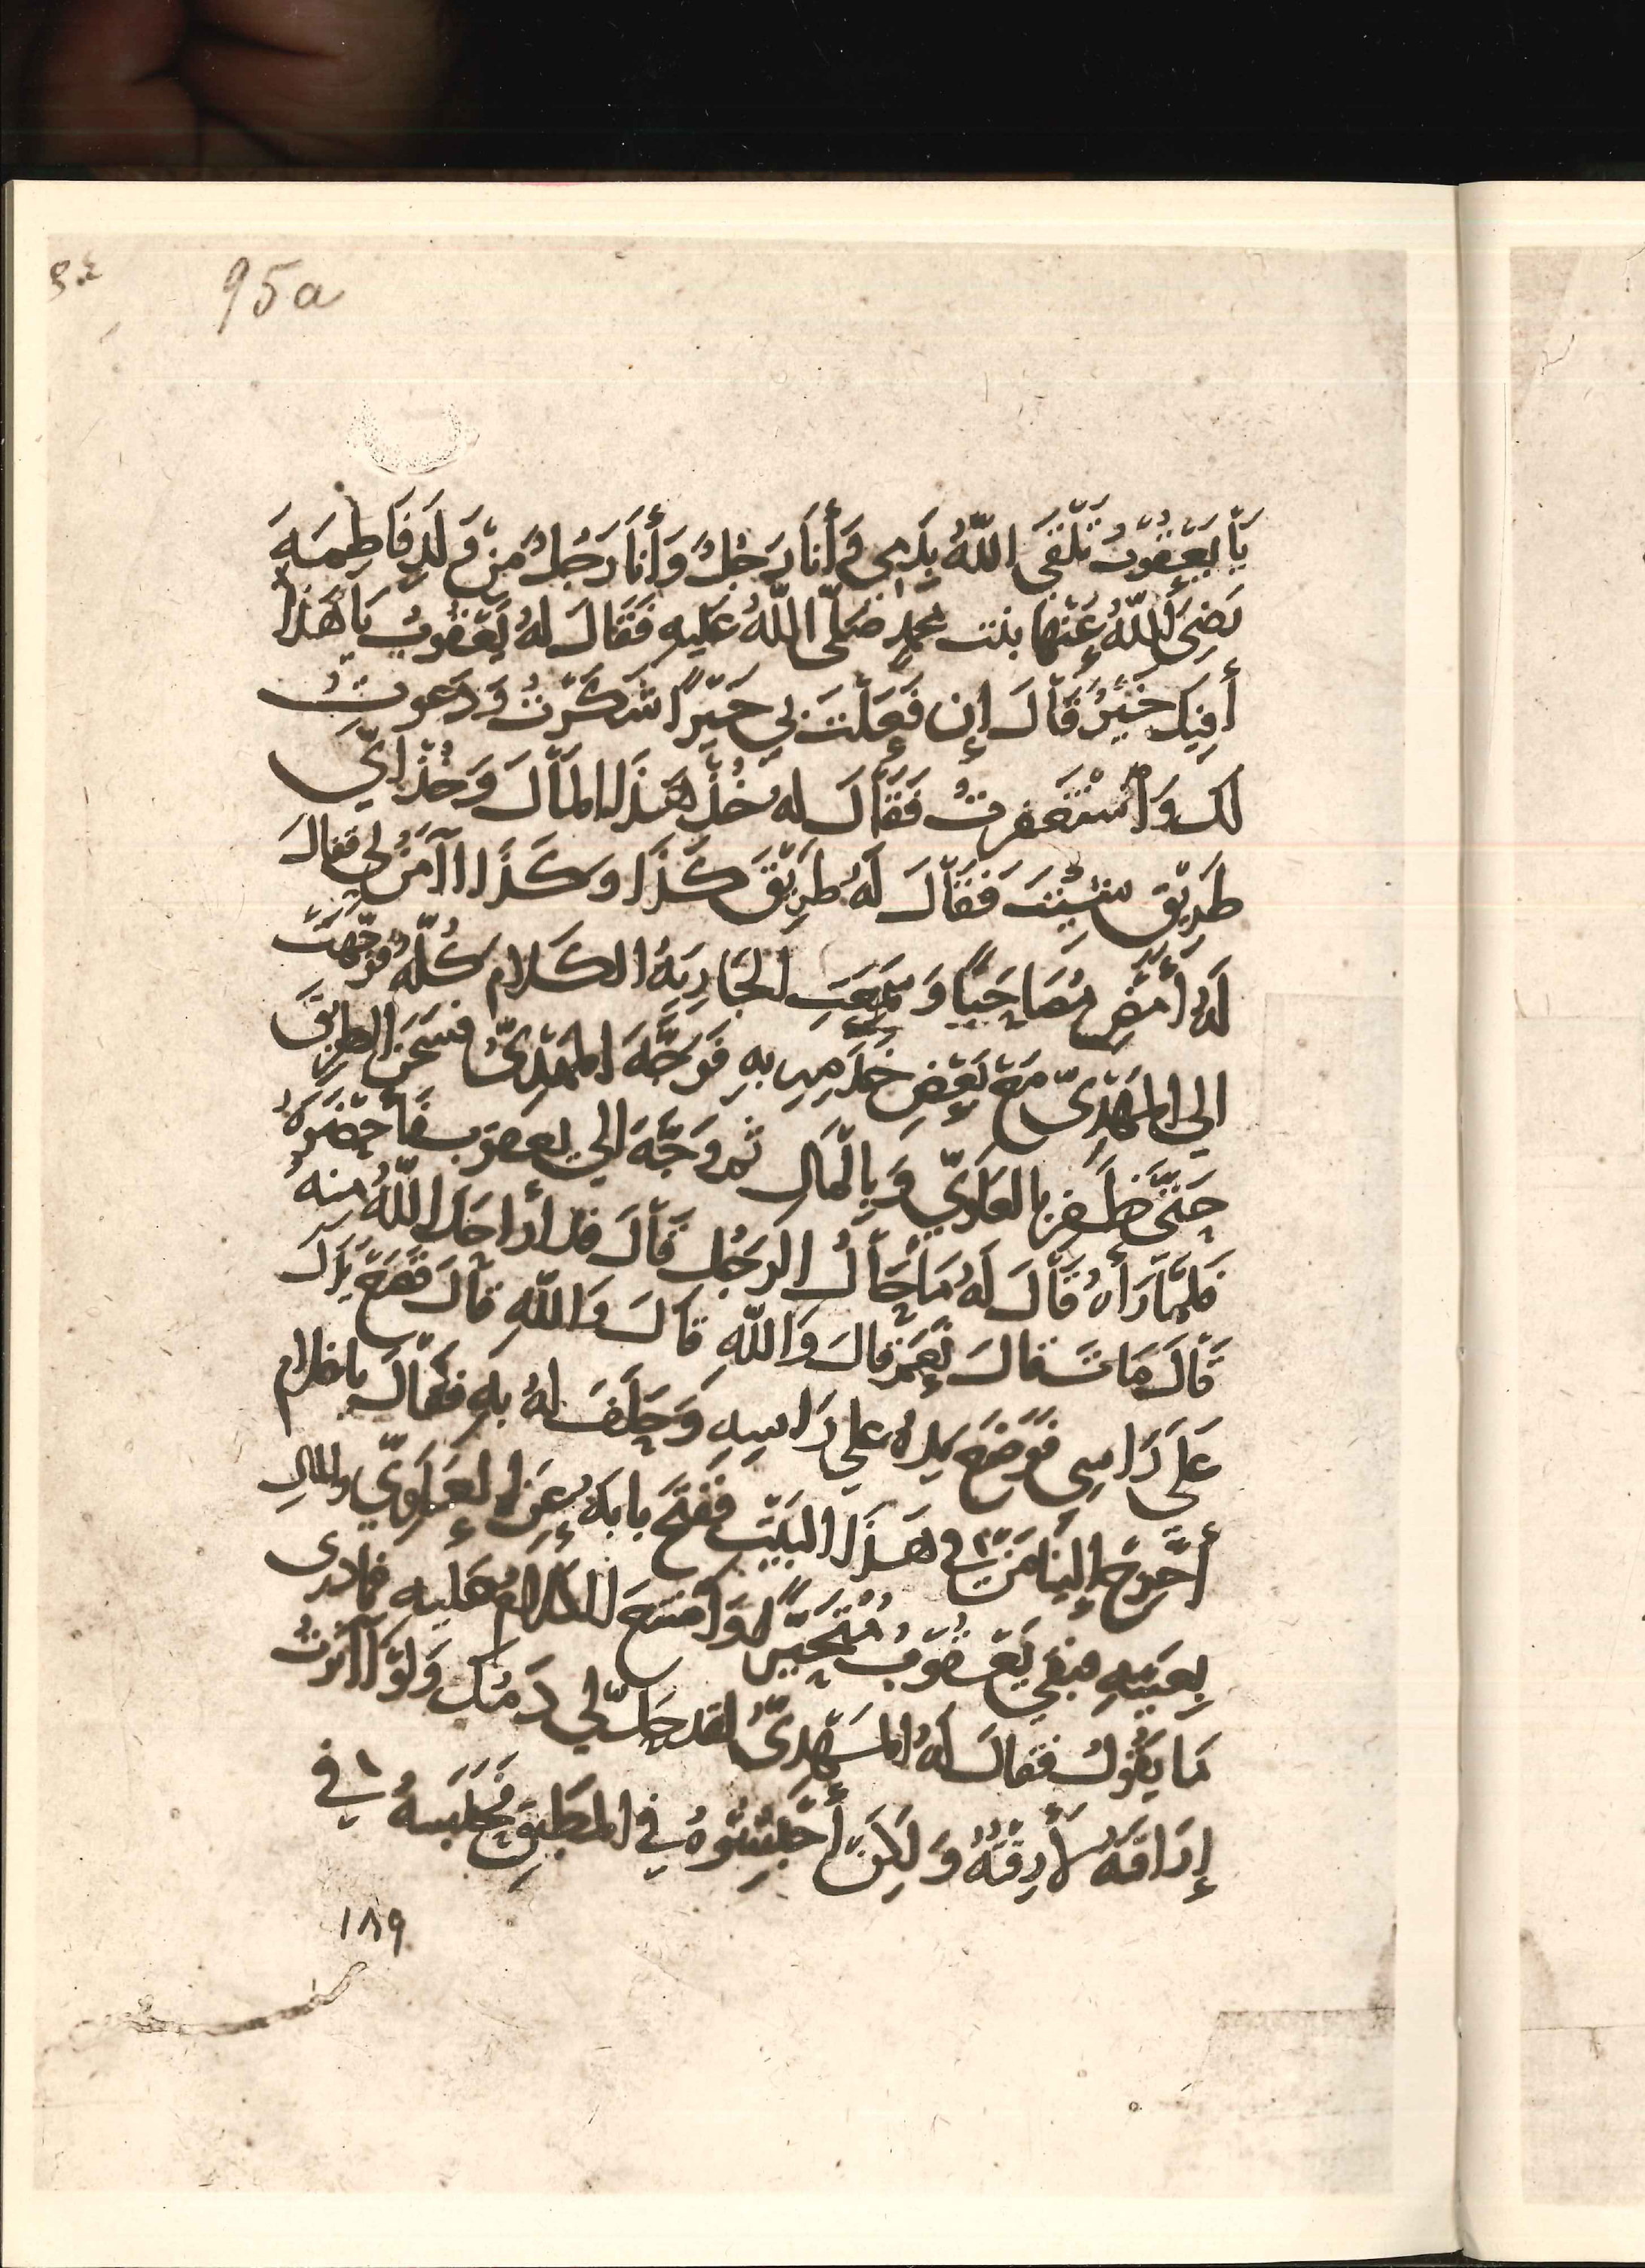 95a
يَا يَعْقُوبُ تَلْقَى اللّهُ بِدَمِي وَأَنَا رَجُلٌ وَأَنَا رَجُلٌ مِنْ وَلَدِ فَاطِمَةَ
رَضِيَ اللّهُ عَنْهَا بنت محمدٍ صَلّى اللّهُ عَلَيهِ فَقَالَ لَهُ يَعْقُوبُ يَا هَذَا
أَفِيكَ خَيْرٌ قَالَ إِن فَعَلْتَ بِي خَيْرًا شَكَرْتُ وَدَعَوتُ
لك وَاسْتَغفرتُ فَقَالَ لهُ خُذْ هَذَا المَالَ وَخُذْ ايَّ
طَرِيْقٍ شِئْتَ فَقَالَ لَهُ طَرِيْقَ كَذَا وَكَذَا اآمَنُ لِي فقالَ
لَهُ أمْضِ مُصَاحَبًا وَسَمِعَتِ الجَارِيَةُ الكَلام كُلّهُ فوَجّهَتْ
الي المَهْدِيّ مَعَ بَعْضِ خَدَمِهِ بهِ فَوَجَّهَ المَهْدِيُّ فشَحَنَ الطرِيْقَ
حَتَّى ظَفِرَ بالعَلَوِيّ وَبِالْمَالِ ثم وَجَّهَ الي يعقوب فَأحْضَرَهُ
فَلَمَّا رَأهُ قَالَ لَهُ مَا حَالُ الرَجُلِ قَالَ قد أراحَكَ اللّهُ منهُ
قَالَ مَاتَ قالَ نَعَمْ قالَ وَاللّهِ قَالَ وَاللّهِ قالَ فَضَعْ يَدَكَ
عَلَى رَاسِي فَوَضَعَ يدهُ علي رَاسِهِ وَحَلَفَ لهُ بهِ فَقَالَ ياغلام
أَخْرِجْ إلينا مَنْ في هَذَا البَيْتِ فَفَتَحَ بابَهُ عن العَلَوِيّ والمالِ
بِعَينِهِ فبَقِيَ يَعْقُوبُ مُتَحَيِّرًا وَامْتَنَعَ الكلامُ عَليهِ فمَا درى
مَا يَقُولُ فقالَ لَهُ المَهْدِيُّ لقد حَلَّ لِي دَمُكَ وَلَوْ اآثَرْتُ
إِرَاقَتَهُ لأَرَقْتُهُ وَلَكِنْ أحْبِسُوهُ فِي المُطْبِقِ فَحَبَسَهُ في
١٨٩